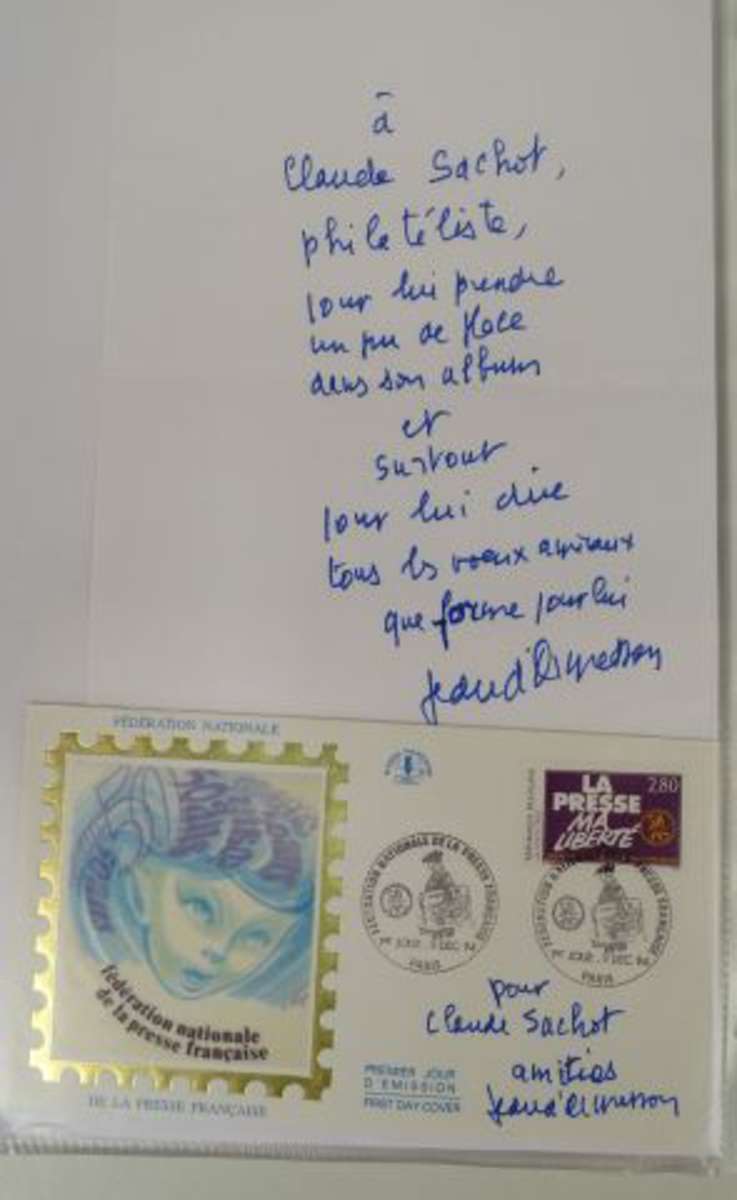 à
Claude Sachot,
philatéliste,
pour lui prendre
un peu de place
dans son album
et
surtout
pour lui dire
tous les voeux amicaux
que forme pour lui
Jean d'Ormesson
FÉDÉRATION NATIONALE
fédération nationale
de la presse française
DE LA PRESSE FRANÇAISE
LA
PRESSE
MA
LIBERTÉ
2,80
FÉDÉRATION NATIONALE DE LA PRESSE FRANÇAISE
1ER JOUR DEC. 94
PARIS
PRESSE FRANÇAISE
1ER JOUR DEC. 94
PARIS
PREMIER JOUR
D'ÉMISSION
FIRST DAY COVER
pour
Claude Sachot
amitiés
Jean d'Ormesson